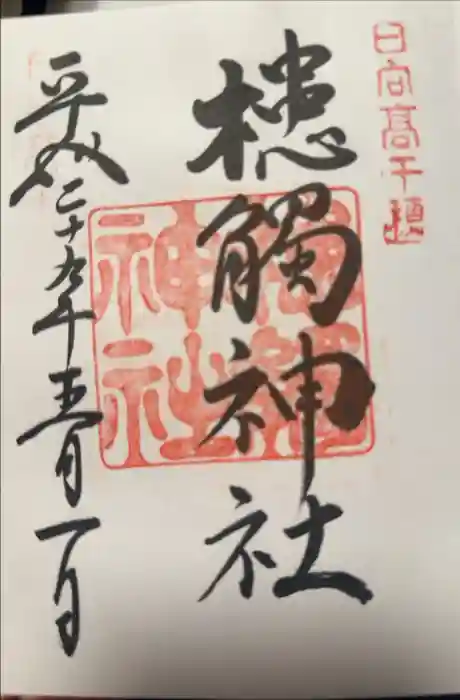 日向高千穂
槵觸神社
槵觸神社
平成二十九年五月一日